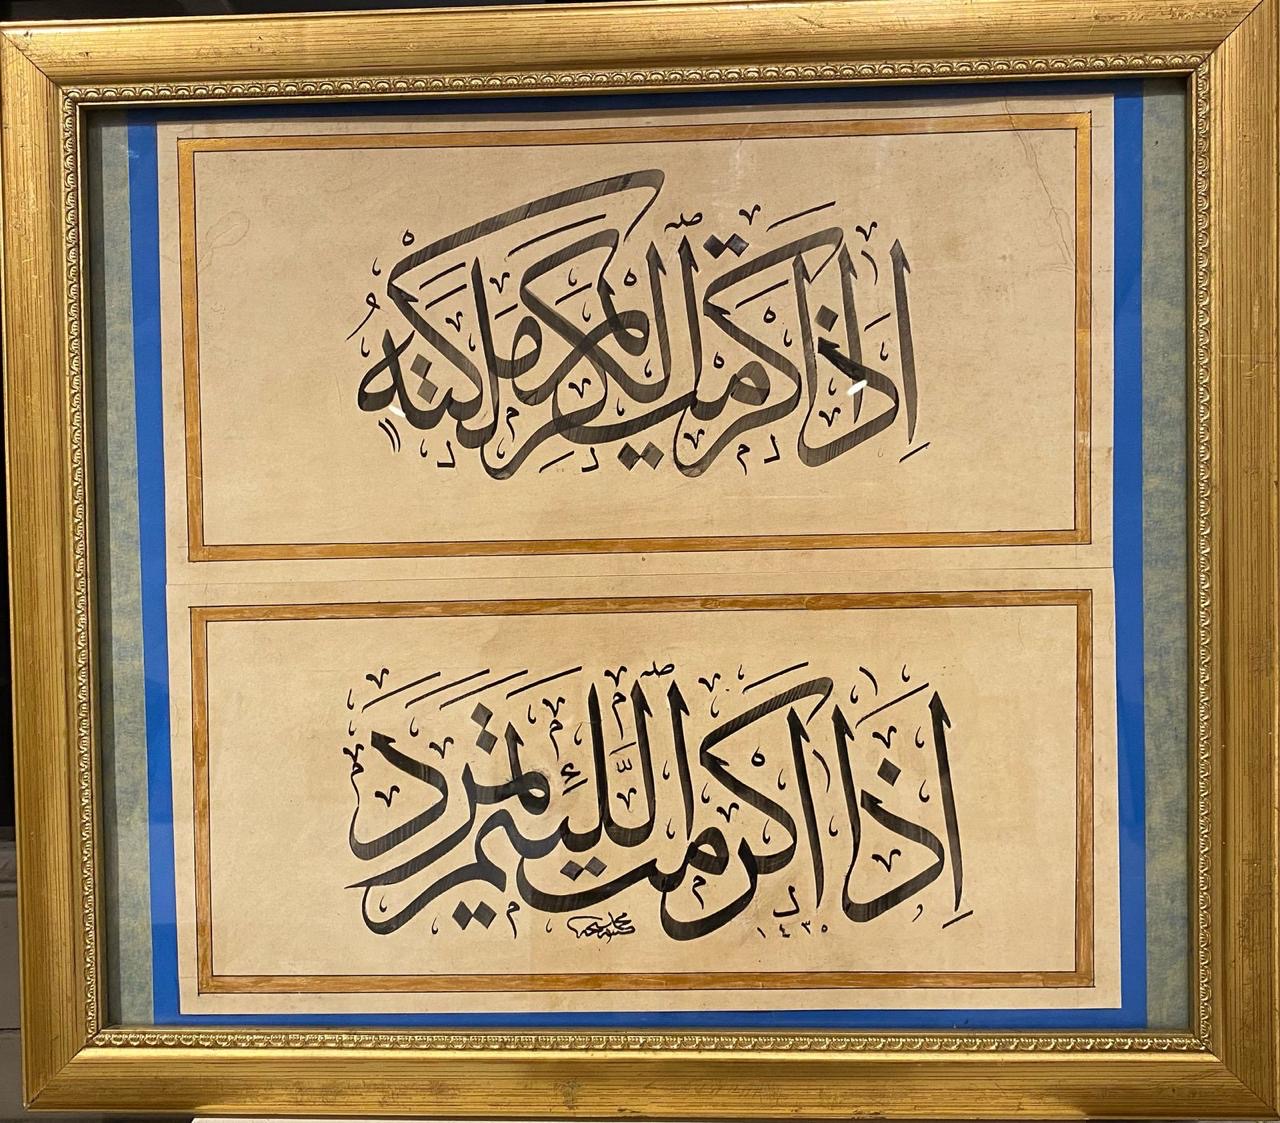 اِذَا اَكْرَمْتَ الْكَرِيمَ مَلَكْتَهُ
اِذَا اَكْرَمْتَ اللَّئِيمَ تَمَرَّدَ
١٤٣٥